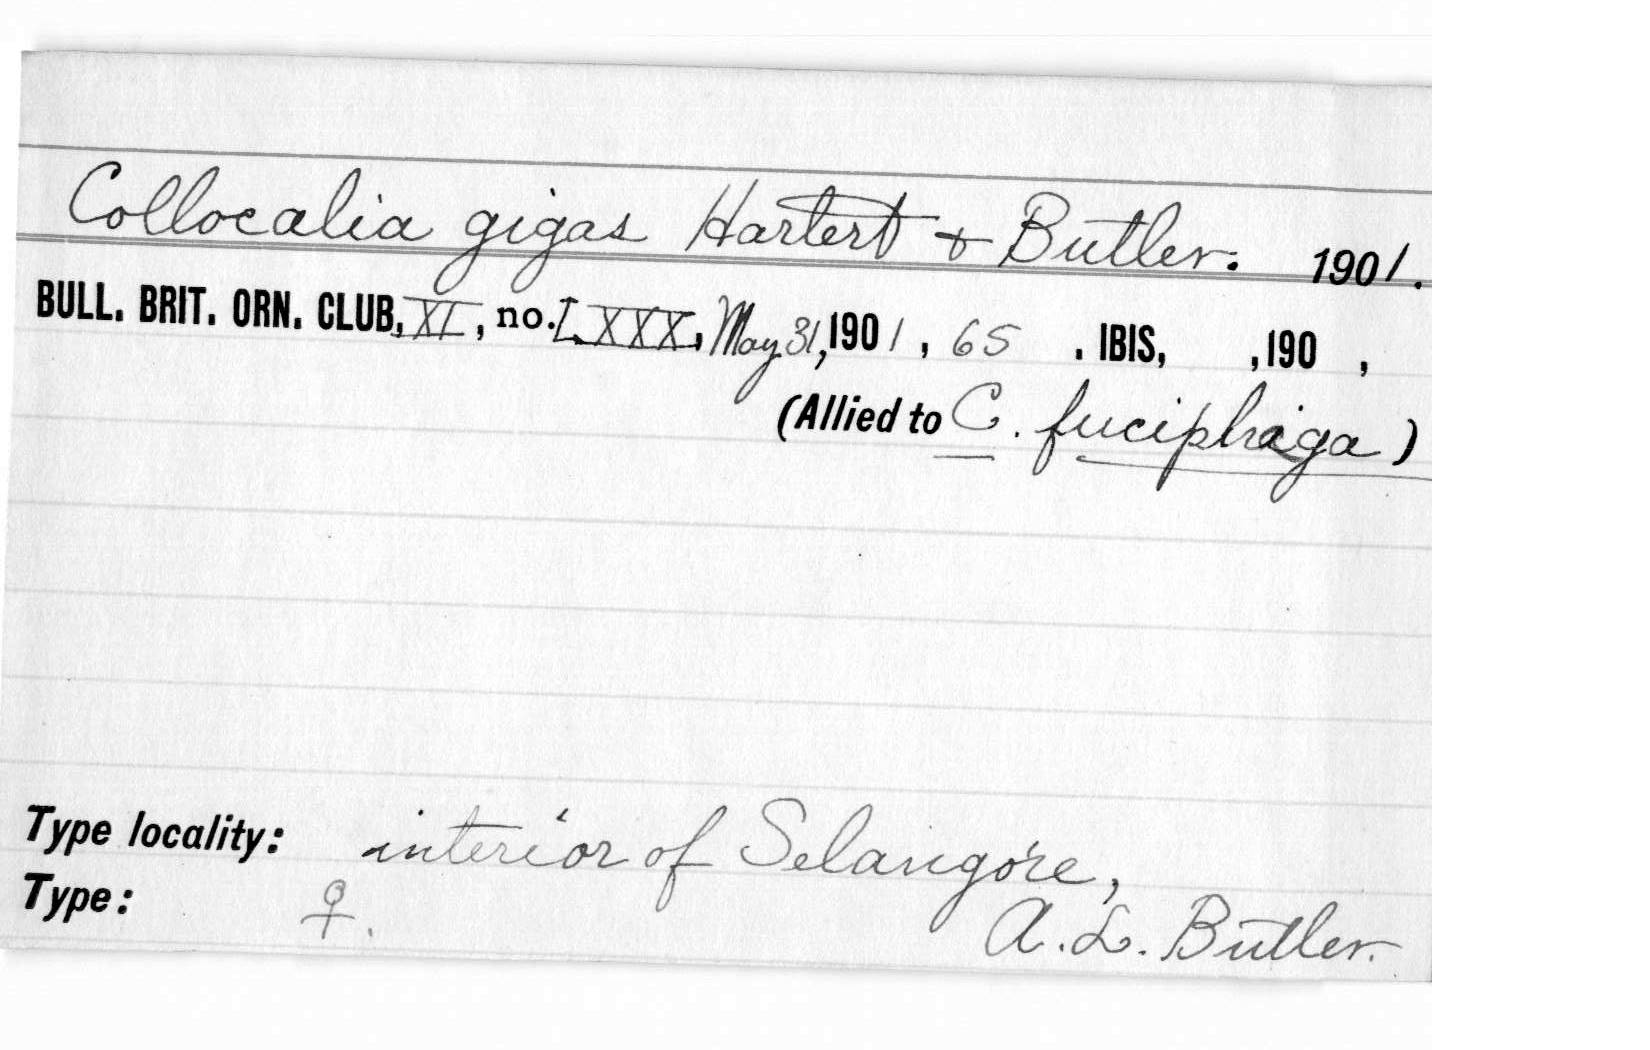 Collocalia gigas Hartert & Butler. 1901.
BULL. BRIT. ORN. CLUB, XI, no. LXXX, May 31, 1901, 65 . IBIS, , 190 ,
(Allied to C. fuciphaga)
Type locality: interior of Selangore,
Type: ♀. A. L. Butler.